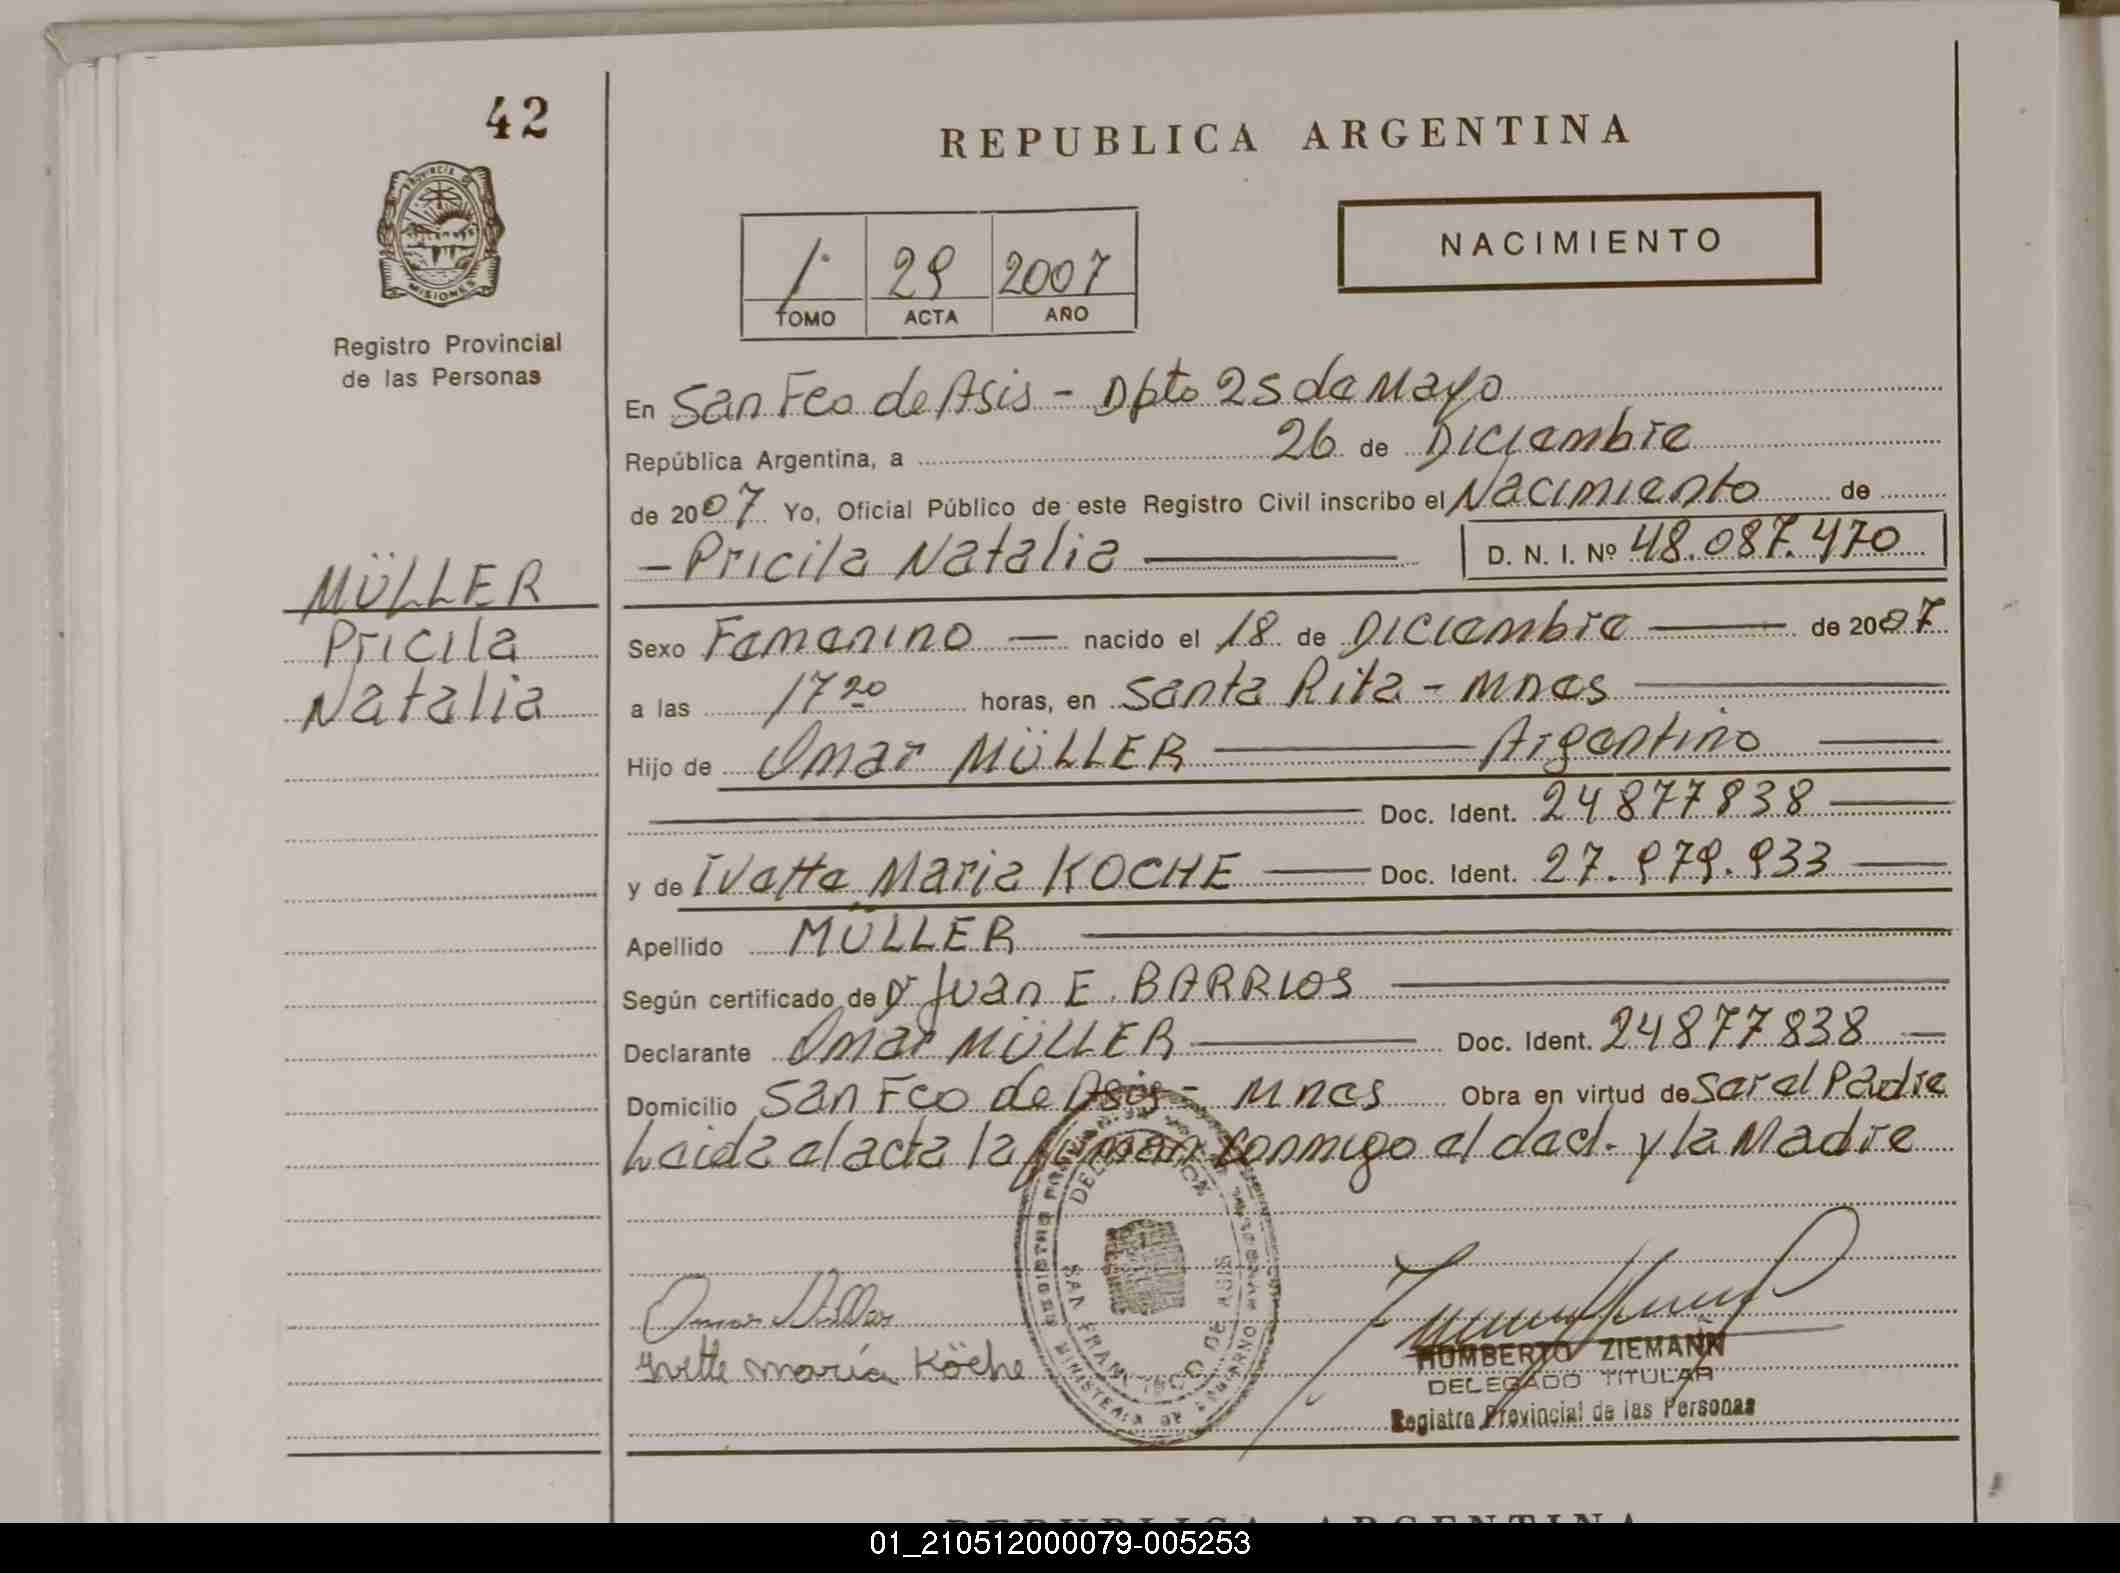 42
REPUBLICA ARGENTINA
PROVINCIA DE
MISIONES
NACIMIENTO
1· 29 2007
TOMO ACTA AÑO
Registro Provincial
de las Personas
En San Fco de Asis - Dpto 25 de Mayo
República Argentina, a 26 de Diciembre
de 2007 Yo, Oficial Público de este Registro Civil inscribo el Nacimiento de
- Pricila Natalia — D. N. I. Nº 48.087.470
MÜLLER
Pricila
Natalia
Sexo Femenino — nacido el 18 de Diciembre — de 2007
a las 17 20 horas, en Santa Rita - Mnes —
Hijo de Omar MÜLLER — Argentino —
— Doc. Ident. 24877838 —
y de Ivette Maria KOCHE — Doc. Ident. 27.979.933 —
Apellido MÜLLER —
Según certificado de Dr Juan E. BARRIOS —
Declarante Omar MÜLLER — Doc. Ident. 24877838 —
Domicilio San Fco de Asis - Mnes Obra en virtud de Ser el Padre
Leida el acta la firman conmigo el decl. y la Madre
DELEGACION
SAN FRANCISCO DE ASIS
Omar Müller
Ivette maría Köche
HUMBERTO ZIEMANN
DELEGADO TITULAR
Registro Provincial de las Personas
REPUBLICA ARGENTINA
01_210512000079-005253